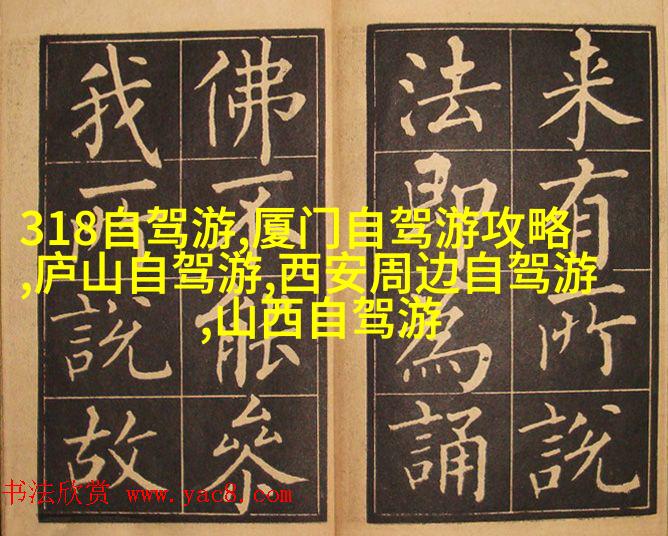 来有所說
法即為誦
佛不能叅
我所說故
318自驾游,厦门自驾游攻略
,庐山自驾游,西安周边自驾游
,山西自驾游
书法欣赏 www.yac8.com